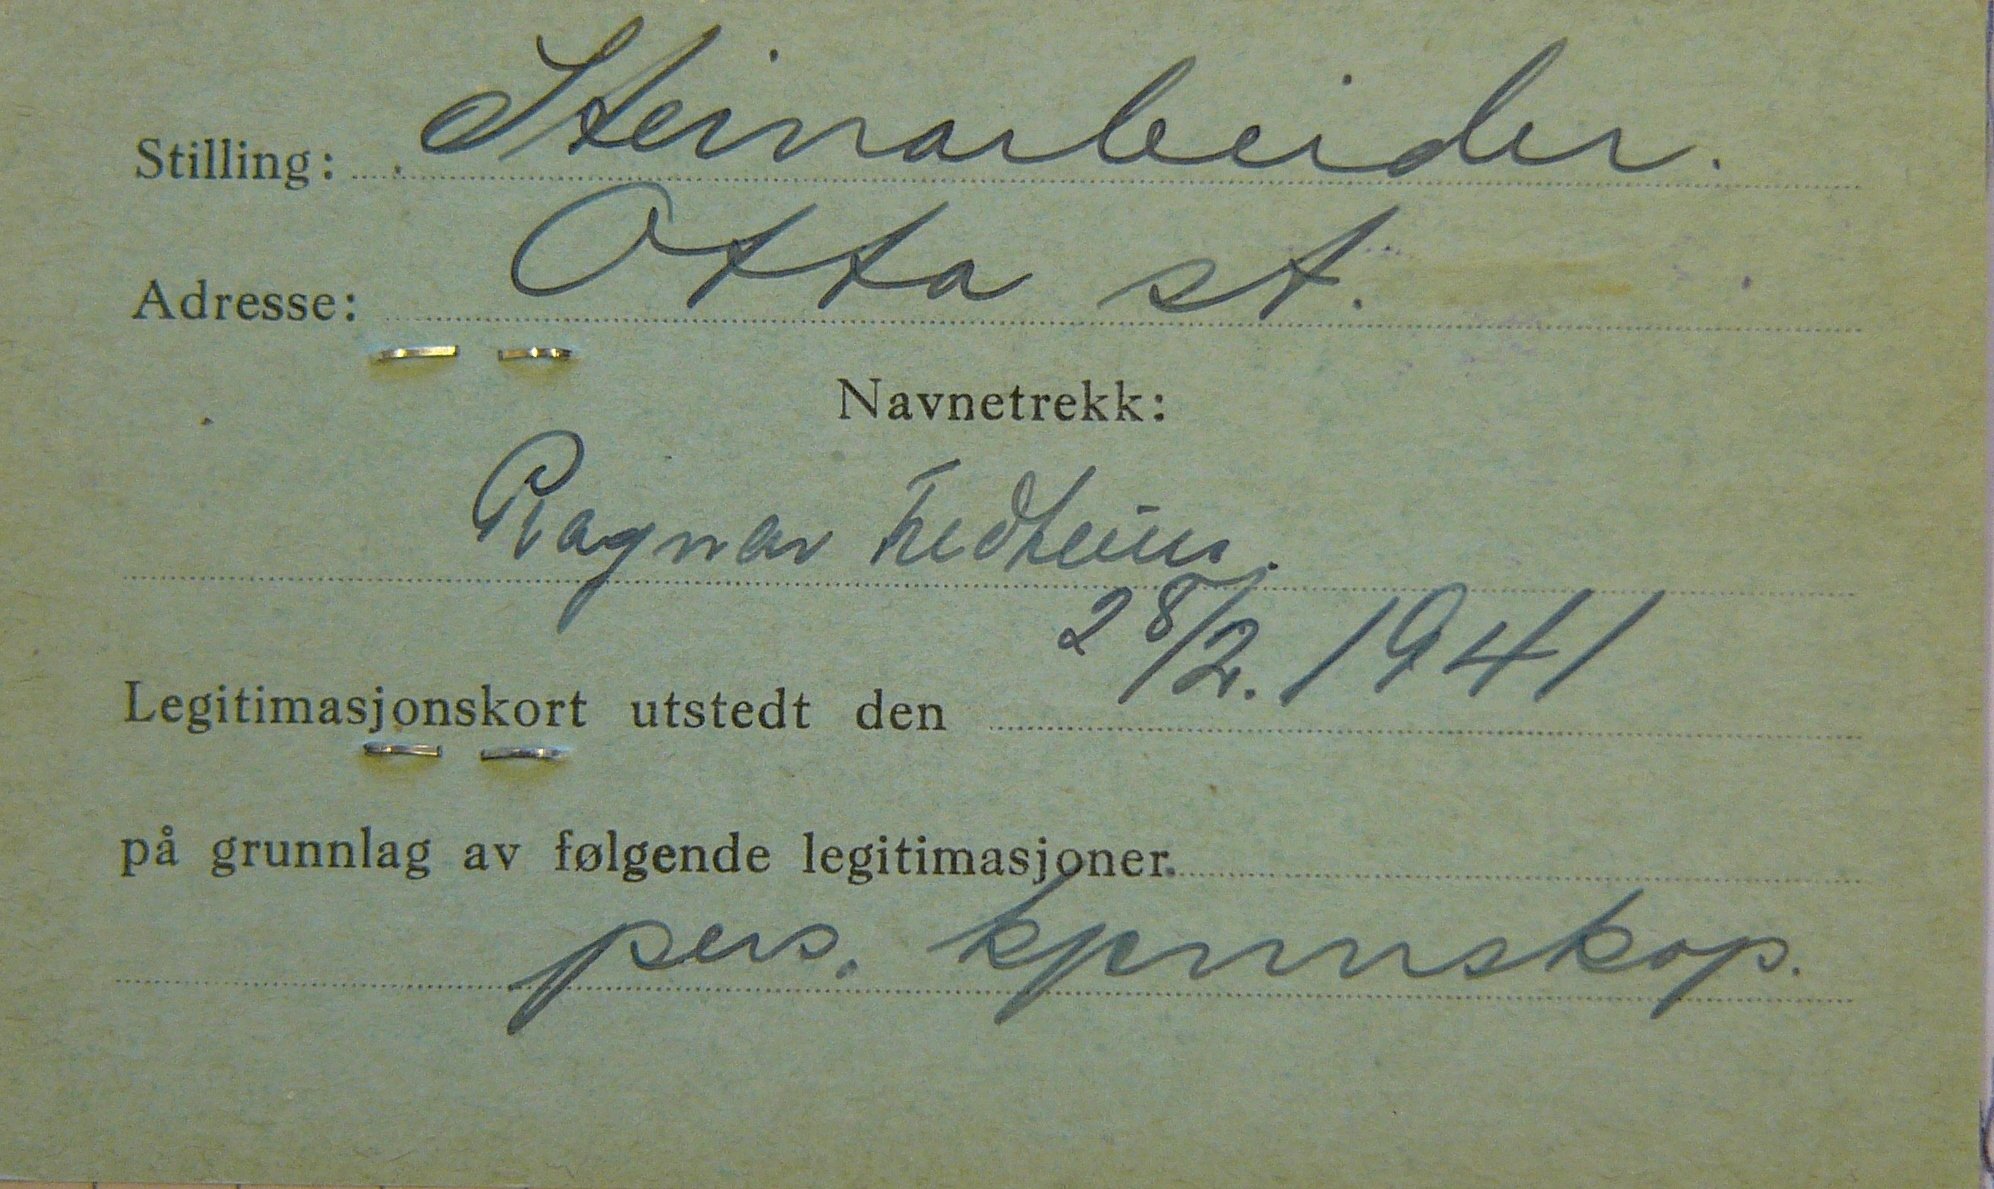 Stilling: Steinarbeider.
Adresse: Otta st.
Navnetrekk:
Ragnar
Legitimasjonskort utstedt den 28/2. 1941
på grunnlag av følgende legitimasjoner.
pers. kjennskap.